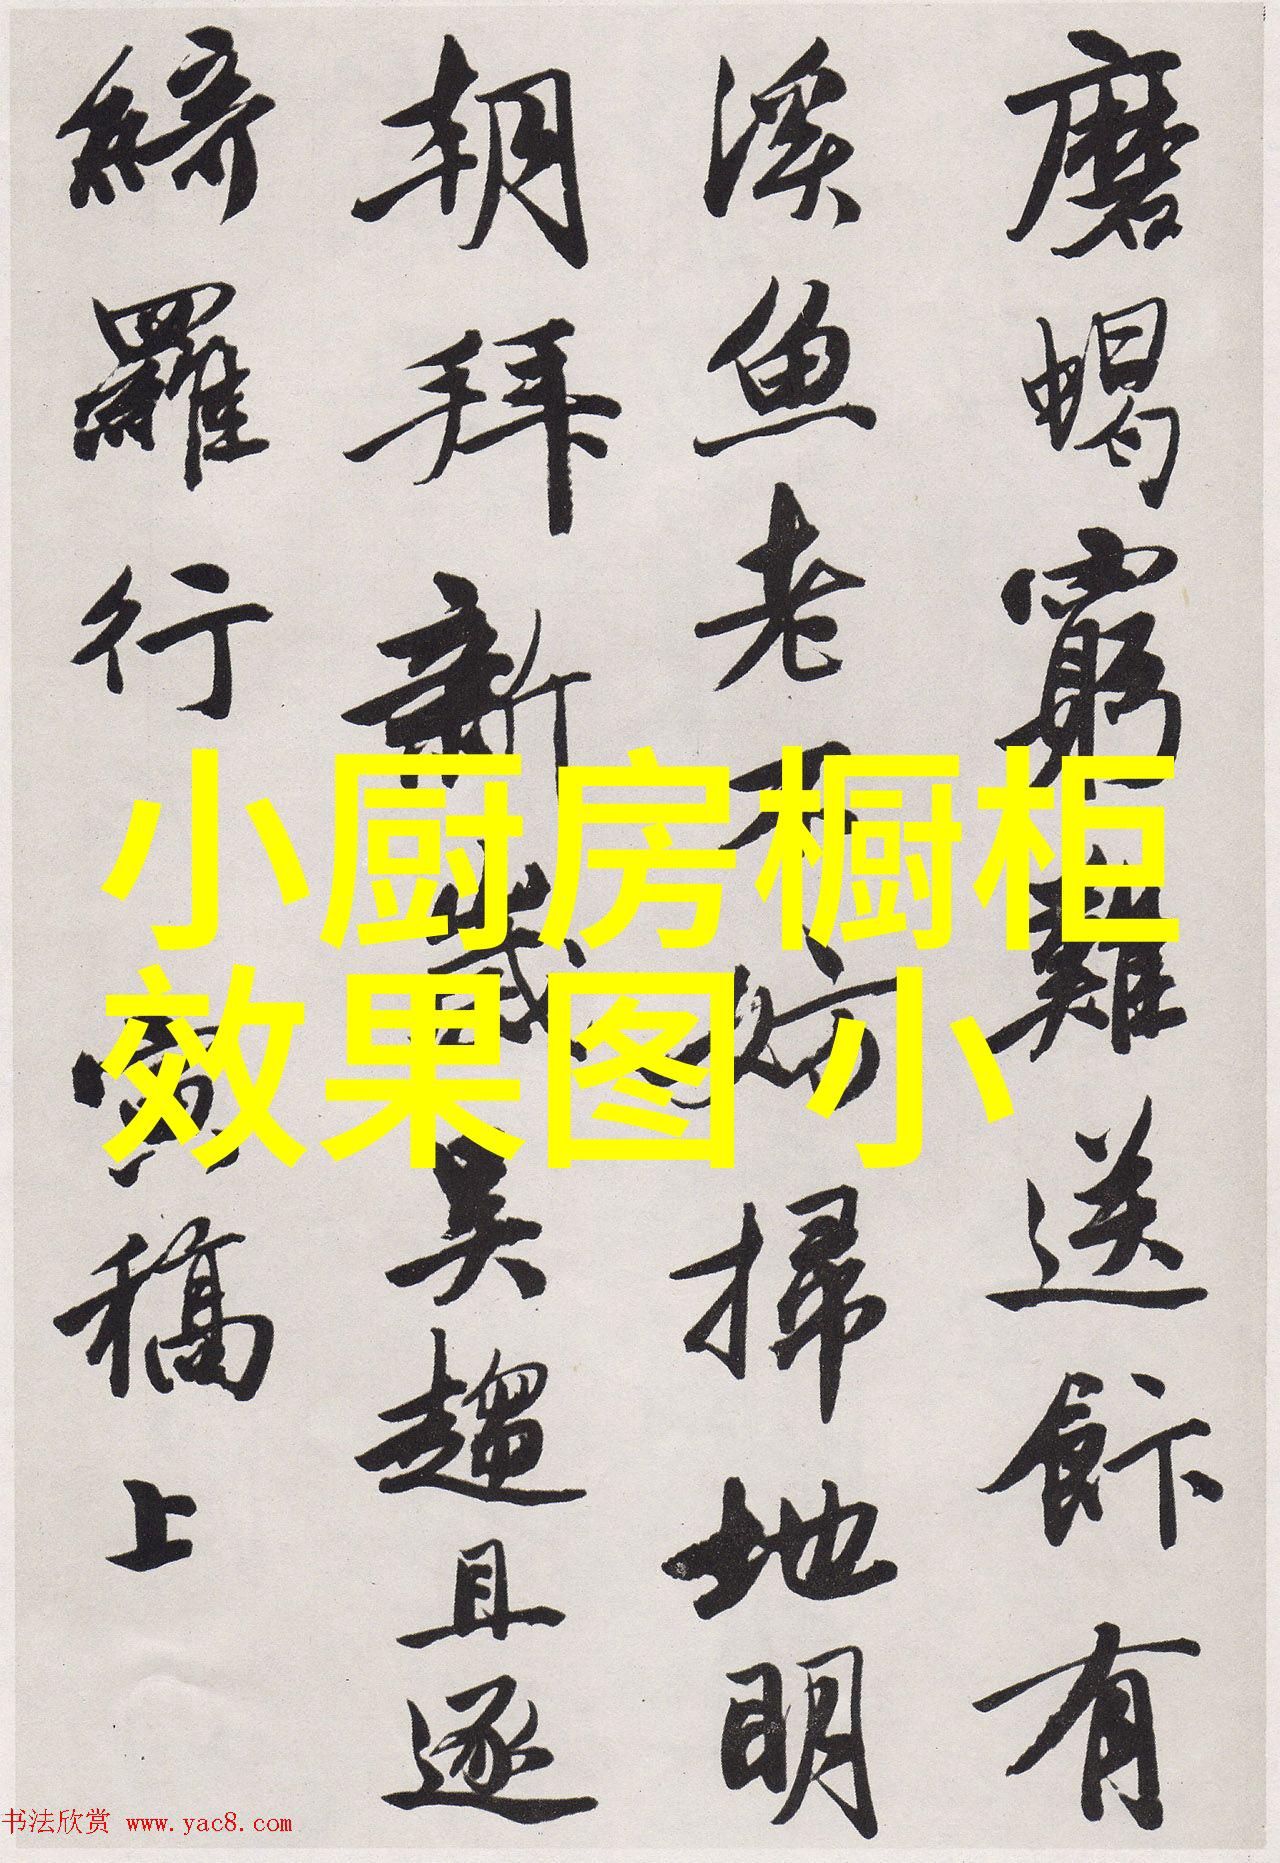 磨蝎窮難送飰有
溪魚老不妨掃地明
朝拜新歲吳趨且逐
綺羅行稿上
小厨房橱柜
效果图 小
书法欣赏 www.yac8.com